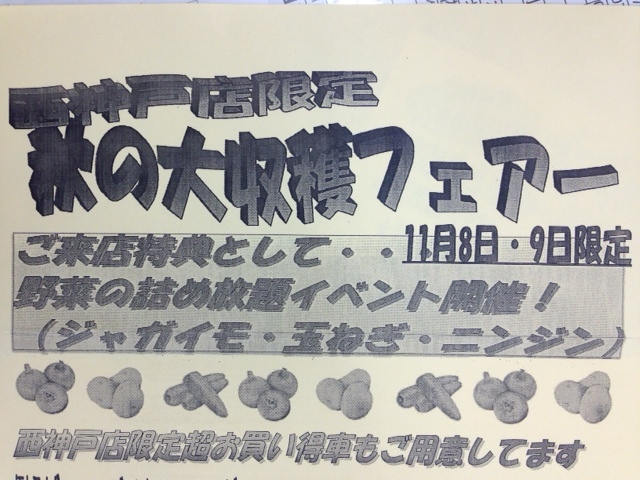 西神戸店限定
秋の大収穫フェアー
ご来店特典として・・・11月8日・9日限定
野菜の詰め放題イベント開催！
（ジャガイモ・玉ねぎ・ニンジン）
西神戸店限定超お買い得車もご用意してます